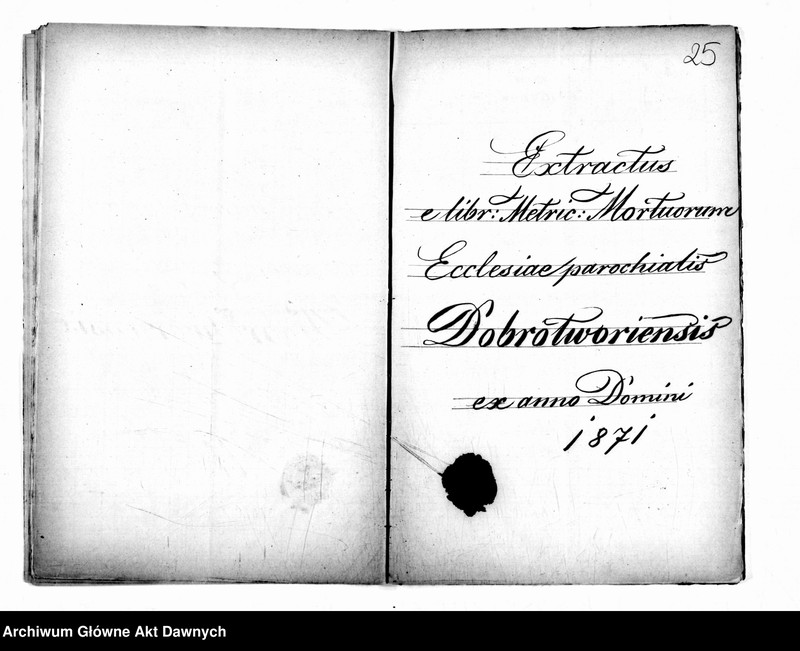 25
Extractus
e libr: Metric: Mortuorum
Ecclesiae parochialis
Dobrotworiensis
ex anno Domini
1871
Archiwum Główne Akt Dawnych